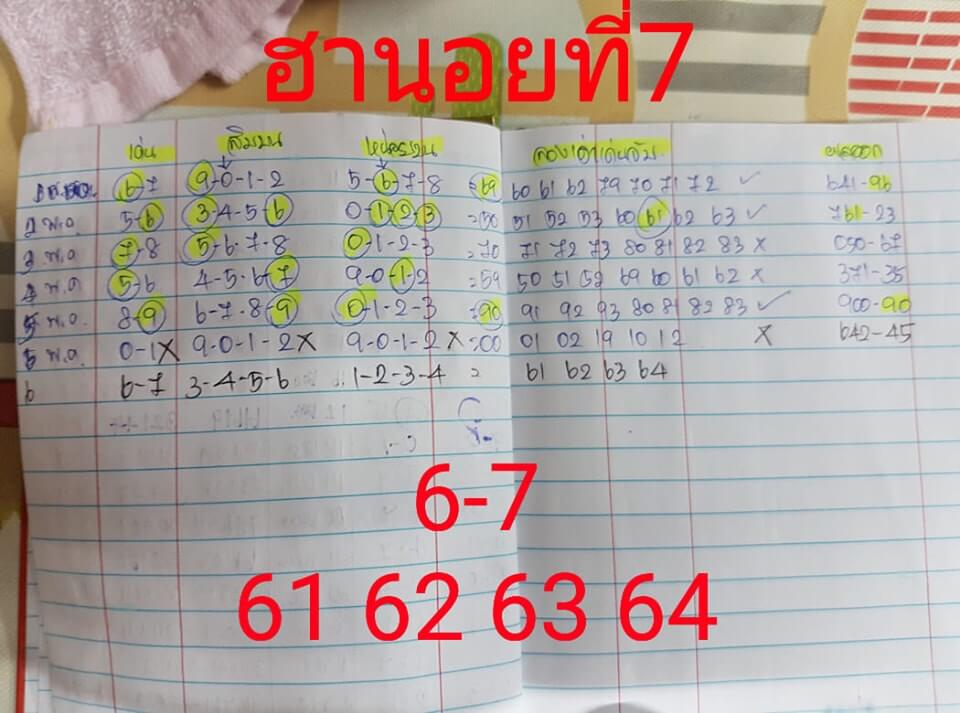 ฮานอยที่7
เด่น สิบบน หน่วยบน รองเจ้าเด่นจับ ผลออก
6-7 9-0-1-2 5-6-7-8 =69 60 61 62 79 70 71 72 ✓ 641-96
2 พ.ค. 5-6 3-4-5-6 0-1-2-3 =50 51 52 53 60 61 62 63 ✓ 761-23
3 พ.ค 7-8 5-6-7-8 0-1-2-3 =70 71 72 73 80 81 82 83 X 050-67
4 พ.ค 5-6 4-5-6-7 9-0-1-2 =59 50 51 52 69 60 61 62 X 371-35
5 พ.ค. 8-9 6-7-8-9 0-1-2-3 =90 91 92 93 80 81 82 83 ✓ 900-90
5 พ.ค. 0-1X 9-0-1-2X 9-0-1-2X =00 01 02 19 10 12 X 642-45
6 6-7 3-4-5-6 1-2-3-4 = 61 62 63 64
6-7
61 62 63 64